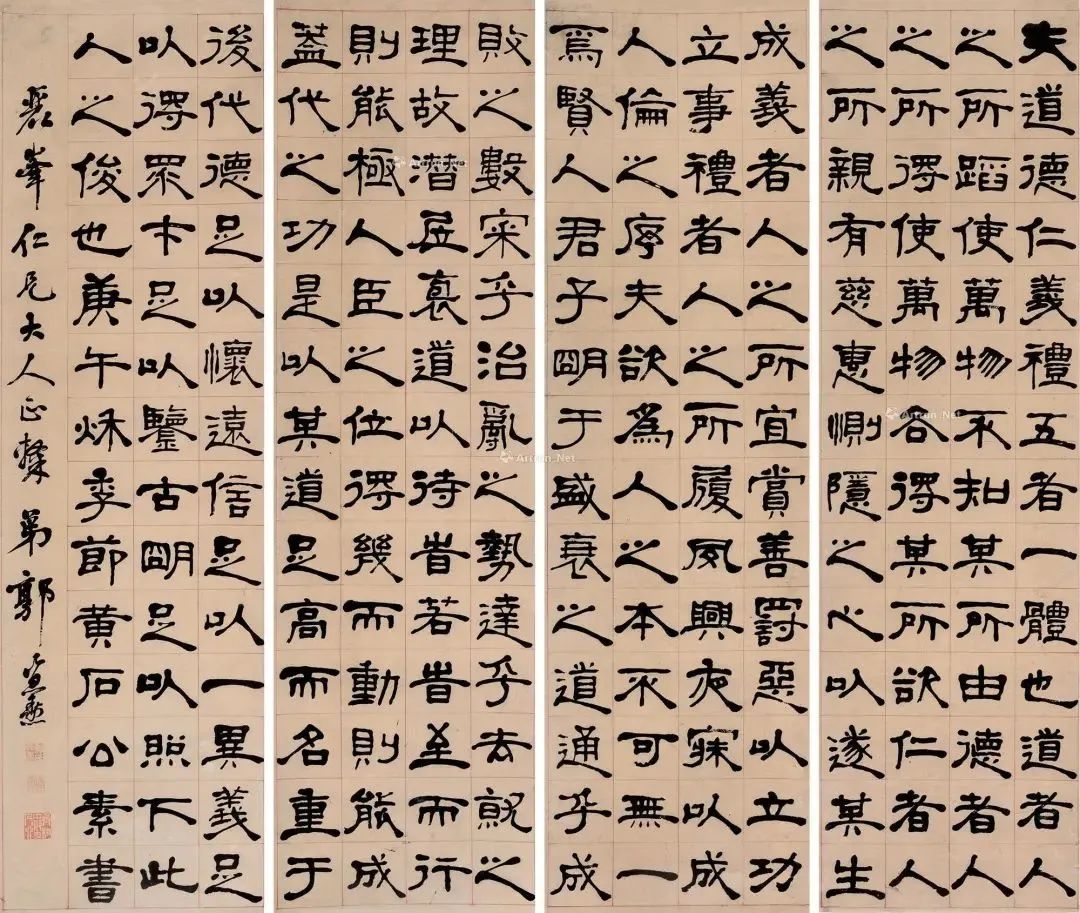 夫道德仁義禮五者一體也道者人
之所蹈使萬物不知其所由德者人
之所得使萬物各得其所欲仁者人
之所親有慈惠惻隱之心以遂其生
成義者人之所宜賞善罰惡以立功
立事禮者人之所履夙興夜寐以成
人倫之序夫欲爲人之本不可無一
爲賢人君子朙于盛衰之道通乎成
敗之數宷乎治亂之勢達乎去就之
理故潛居裒道以待旹若旹至而行
則能極人臣之位得幾而動則能成
蓋代之功是以其道足高而名重于
後代德足以懷遠信足以一異義足
以得眾才足以鑒古朙足以照下此
人之俊也庚午秌季節黃石公素書
峯仁兄大人正 弟郭
Artron.Net
Artron.Net
Artron.Net